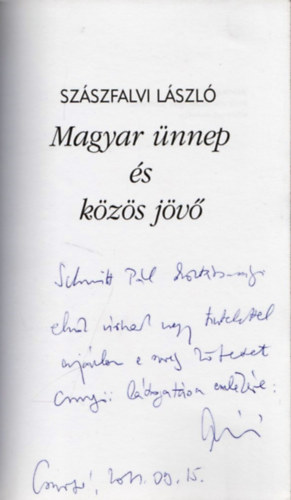 SZÁSZFALVI LÁSZLÓ
Magyar ünnep
és
közös jövő
Schmitt Pál köztársasági
elnök úrnak nagy tisztelettel
ajánlom e
látogatása emlékére:
2011. 09. 15.